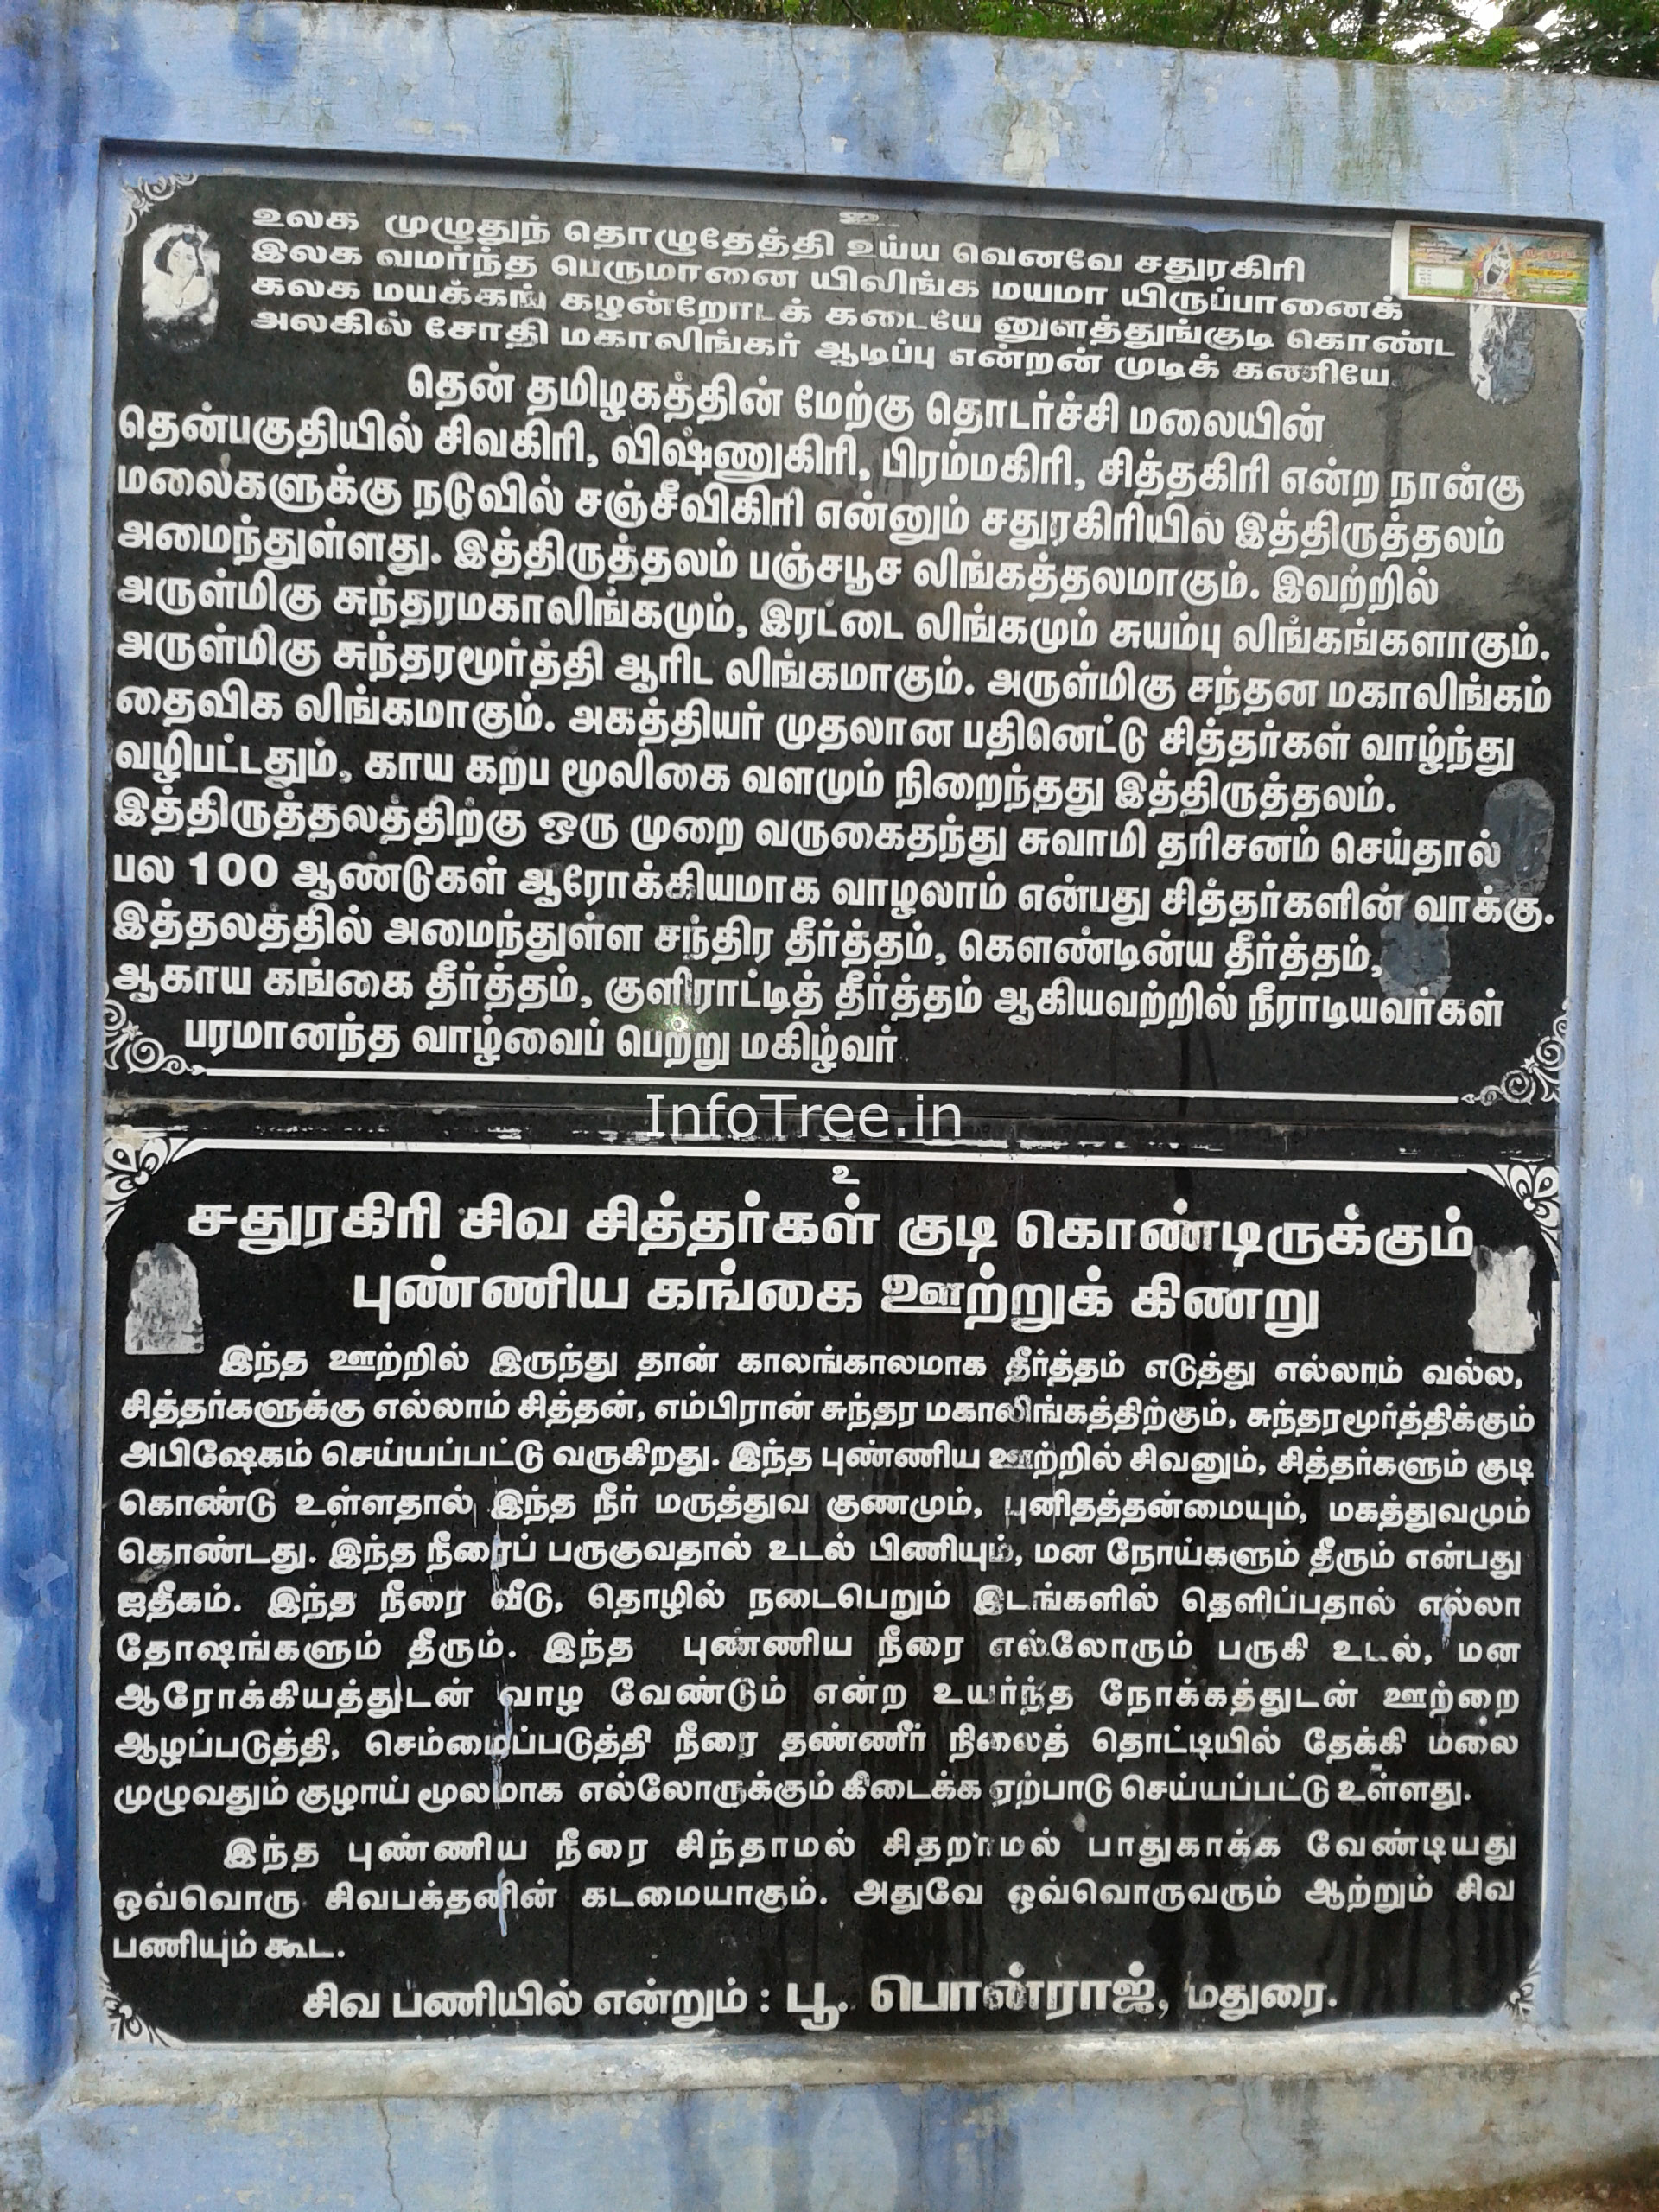 உ
உலக முழுதுந் தொழுதேத்தி உய்ய வெனவே சதுரகிரி
இலக வமர்ந்த பெருமானை யிலிங்க மயமா யிருப்பானைக்
கலக மயக்கங் கழன்றோடக் கடையே னுளத்துங்குடி கொண்ட
அலகில் சோதி மகாலிங்கர் ஆடிப்பு என்றன் முடிக் கணியே
தென் தமிழகத்தின் மேற்கு தொடர்ச்சி மலையின்
தென்பகுதியில் சிவகிரி, விஷ்ணுகிரி, பிரம்மகிரி, சித்தகிரி என்ற நான்கு
மலைகளுக்கு நடுவில் சஞ்சீவிகிரி என்னும் சதுரகிரியில் இத்திருத்தலம்
அமைந்துள்ளது. இத்திருத்தலம் பஞ்சபூச லிங்கத்தலமாகும். இவற்றில்
அருள்மிகு சுந்தரமகாலிங்கமும், இரட்டை லிங்கமும் சுயம்பு லிங்கங்களாகும்.
அருள்மிகு சுந்தரமூர்த்தி ஆரிட லிங்கமாகும். அருள்மிகு சந்தன மகாலிங்கம்
தைவிக லிங்கமாகும். அகத்தியர் முதலான பதினெட்டு சித்தர்கள் வாழ்ந்து
வழிபட்டதும், காய கற்ப மூலிகை வளமும் நிறைந்தது இத்திருத்தலம்.
இத்திருத்தலத்திற்கு ஒரு முறை வருகைதந்து சுவாமி தரிசனம் செய்தால்
பல 100 ஆண்டுகள் ஆரோக்கியமாக வாழலாம் என்பது சித்தர்களின் வாக்கு.
இத்தலத்தில் அமைந்துள்ள சந்திர தீர்த்தம், கௌண்டின்ய தீர்த்தம்,
ஆகாய கங்கை தீர்த்தம், குளிராட்டித் தீர்த்தம் ஆகியவற்றில் நீராடியவர்கள்
பரமானந்த வாழ்வைப் பெற்று மகிழ்வர்
InfoTree.in
உ
சதுரகிரி சிவ சித்தர்கள் குடி கொண்டிருக்கும்
புண்ணிய கங்கை ஊற்றுக் கிணறு
இந்த ஊற்றில் இருந்து தான் காலங்காலமாக தீர்த்தம் எடுத்து எல்லாம் வல்ல,
சித்தர்களுக்கு எல்லாம் சித்தன், எம்பிரான் சுந்தர மகாலிங்கத்திற்கும், சுந்தரமூர்த்திக்கும்
அபிஷேகம் செய்யப்பட்டு வருகிறது. இந்த புண்ணிய ஊற்றில் சிவனும், சித்தர்களும் குடி
கொண்டு உள்ளதால் இந்த நீர் மருத்துவ குணமும், புனிதத்தன்மையும், மகத்துவமும்
கொண்டது. இந்த நீரைப் பருகுவதால் உடல் பிணியும், மன நோய்களும் தீரும் என்பது
ஐதீகம். இந்த நீரை வீடு, தொழில் நடைபெறும் இடங்களில் தெளிப்பதால் எல்லா
தோஷங்களும் தீரும். இந்த புண்ணிய நீரை எல்லோரும் பருகி உடல், மன
ஆரோக்கியத்துடன் வாழ வேண்டும் என்ற உயர்ந்த நோக்கத்துடன் ஊற்றை
ஆழப்படுத்தி, செம்மைப்படுத்தி நீரை தண்ணீர் நிலைத் தொட்டியில் தேக்கி மலை
முழுவதும் குழாய் மூலமாக எல்லோருக்கும் கிடைக்க ஏற்பாடு செய்யப்பட்டு உள்ளது.
இந்த புண்ணிய நீரை சிந்தாமல் சிதறாமல் பாதுகாக்க வேண்டியது
ஒவ்வொரு சிவபக்தனின் கடமையாகும். அதுவே ஒவ்வொருவரும் ஆற்றும் சிவ
பணியும் கூட.
சிவ பணியில் என்றும் : பூ. பொன்ராஜ், மதுரை.